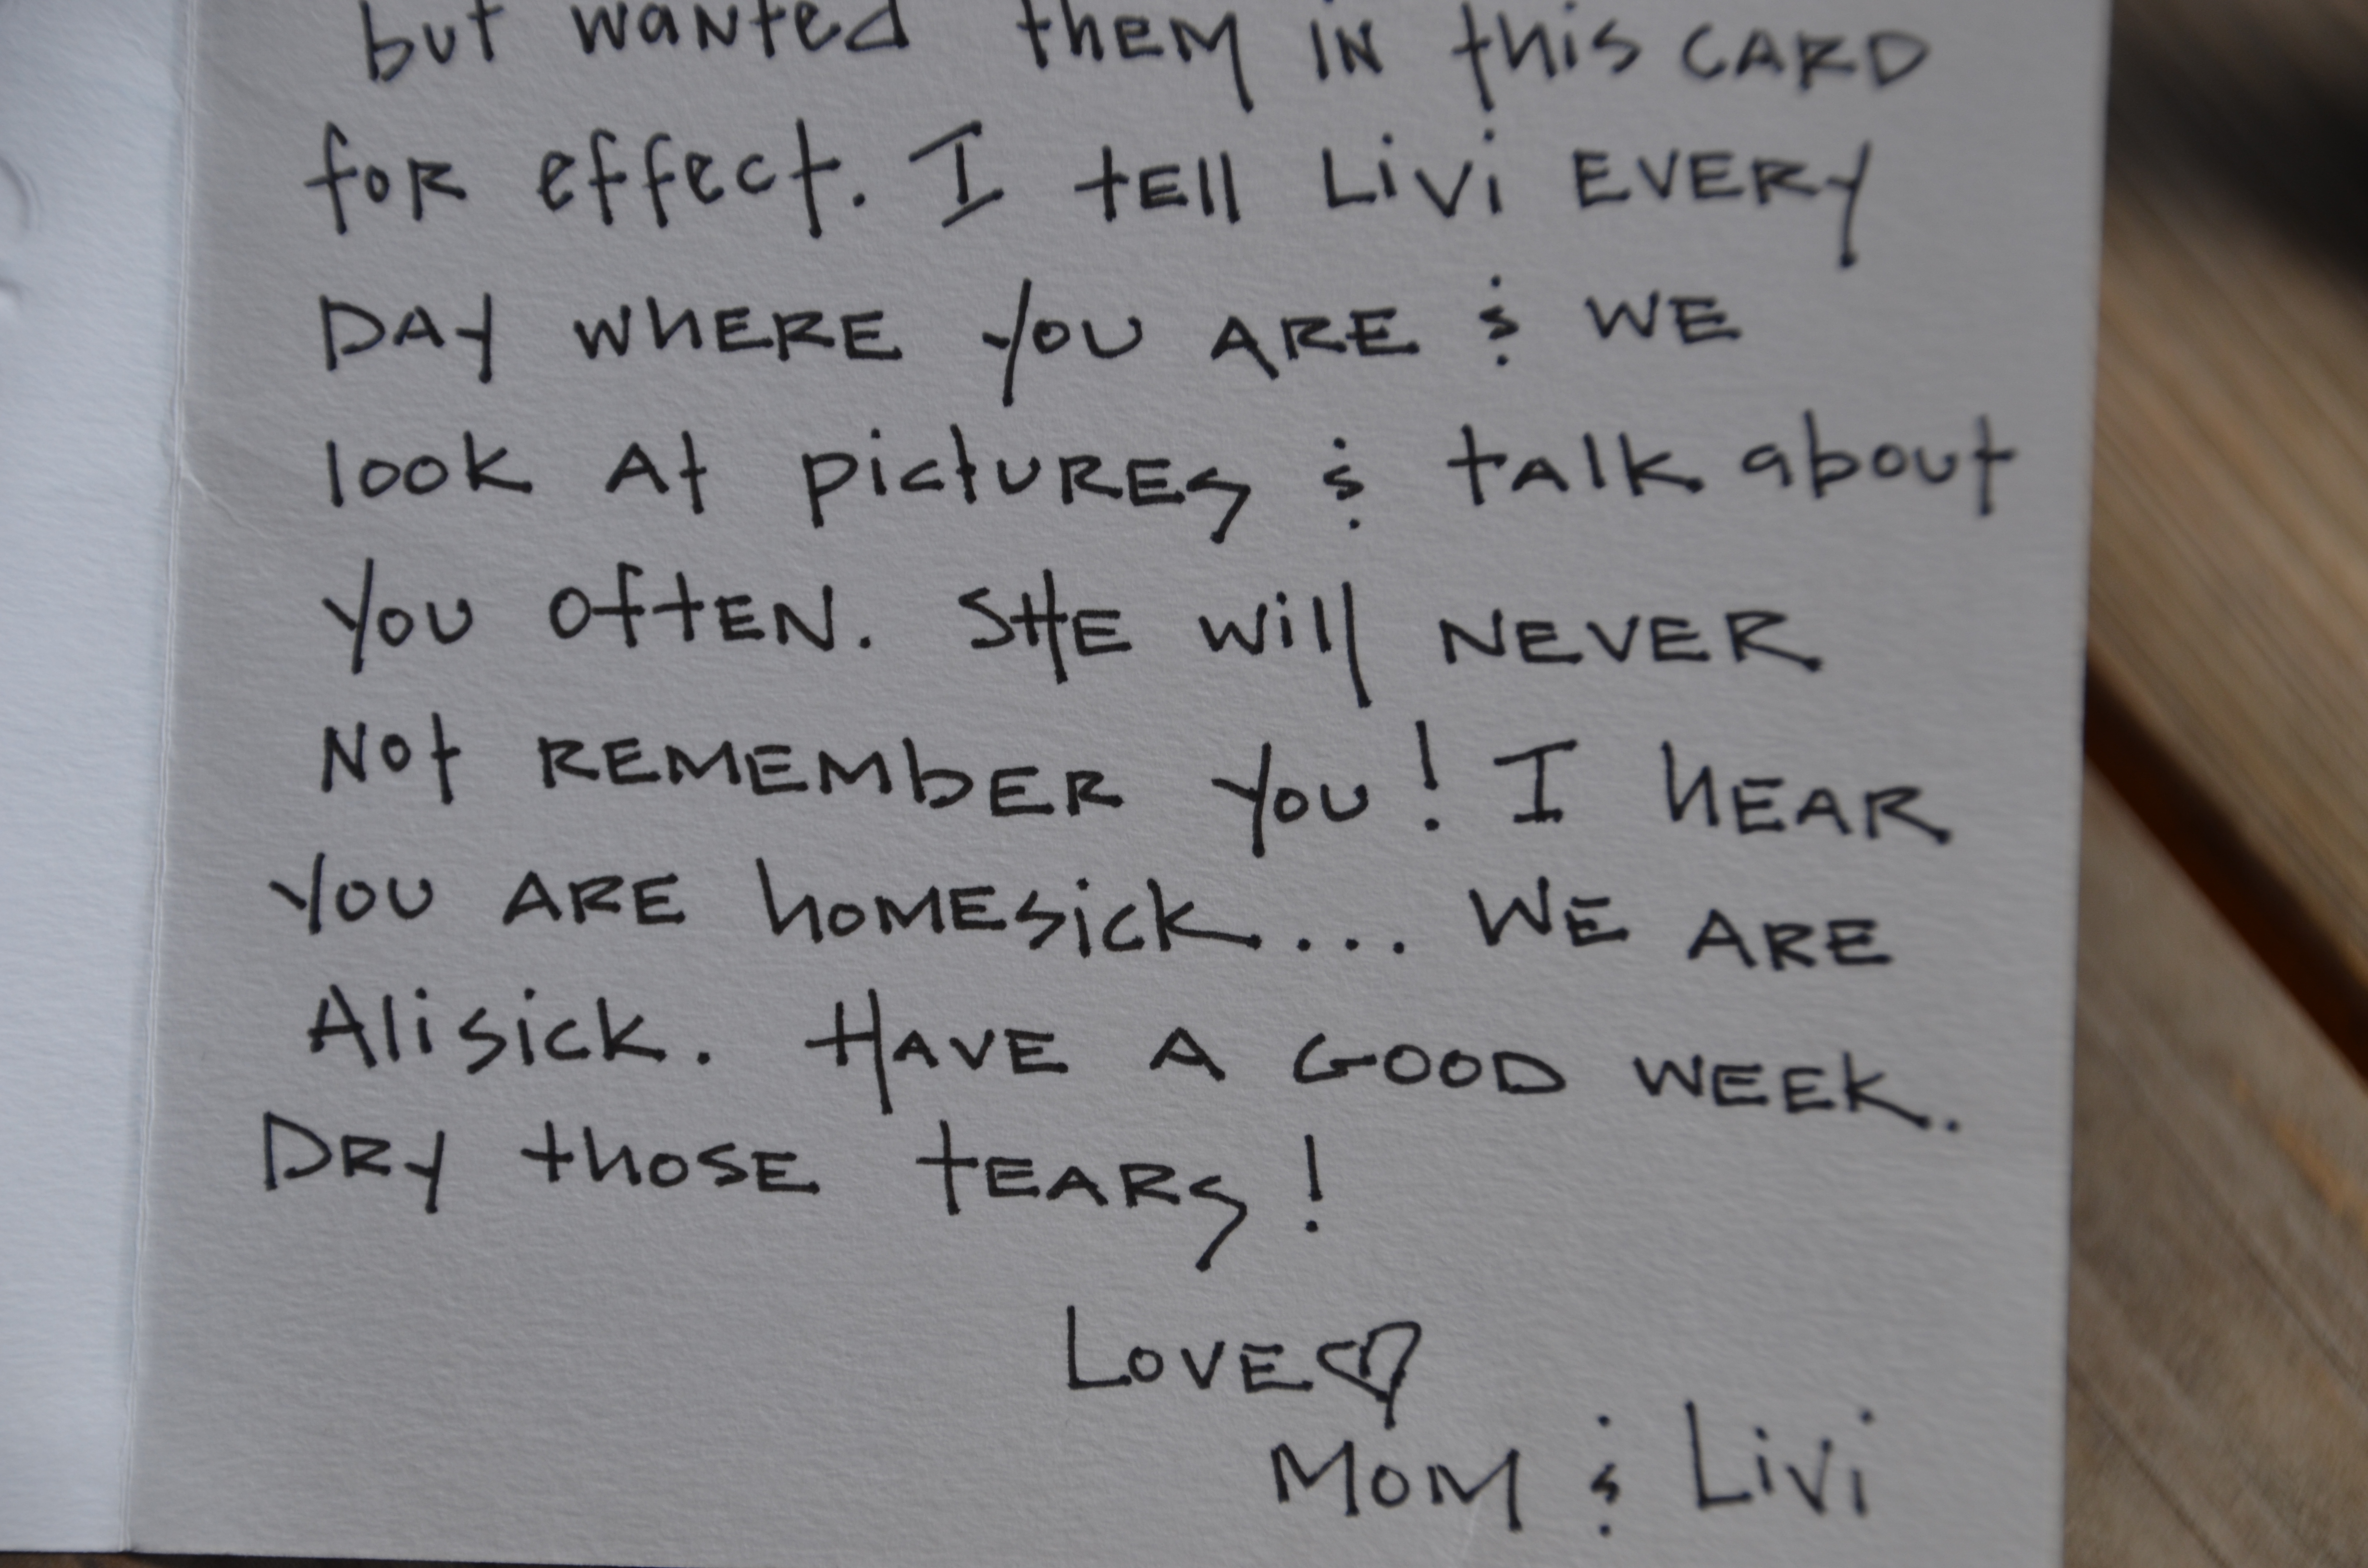 but wanted them in this CARD
for effect. I tell Livi EVERY
DAY WHERE YOU ARE & WE
look At pictures & talk about
You often. SHE will NEVER
Not REMEMBER You! I HEAR
YOU ARE homesick... WE ARE
Alisick. HAVE A GOOD WEEK.
DRY those tears!
Love ♡
Mom & Livi